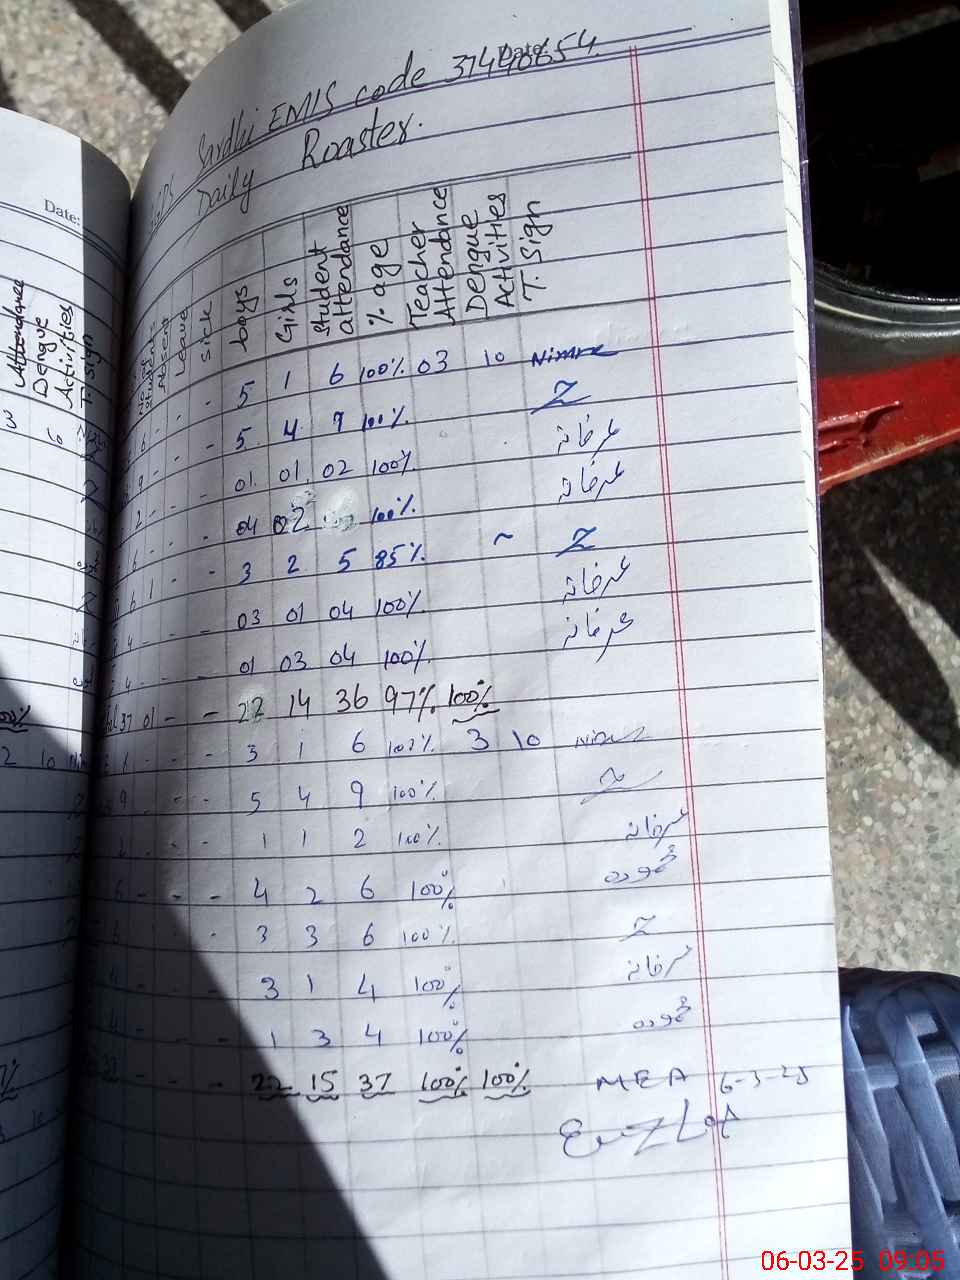 Date:
Date:
Sardhi EMIS code
Daily Roaster.
Attendance
Dengue
Activities
T. Sign
No of students
Absent
Leave
sick
boys
Girls
student attendance
% age
Teacher Attendance
Dengue Activities
T. Sign
6 - - 5 1 6 100% 03 10 Nimra
9 - - 5 4 9 100% Z
2 - - - 01 01 02 100% عرفانہ
6 - - - 04 02 100% عرفانہ
6 1 - - 3 2 5 85% ~ Z
4 - - - 03 01 04 100% عرفانہ
4 - - - 01 03 04 100% عرفانہ
37 01 - - 22 14 36 97% 100%
6 - - - 3 1 6 100% 3 10
9 - - - 5 4 9 100% Z
1 1 2 100% عرفانہ
6 - - - 4 2 6 100%
6 - 3 3 6 100% Z
4 3 1 4 100% عرفانہ
4 - - - 1 3 4 100%
37 - - - 22 15 37 100% 100% MEA 6-3-25
06-03-25 09:05